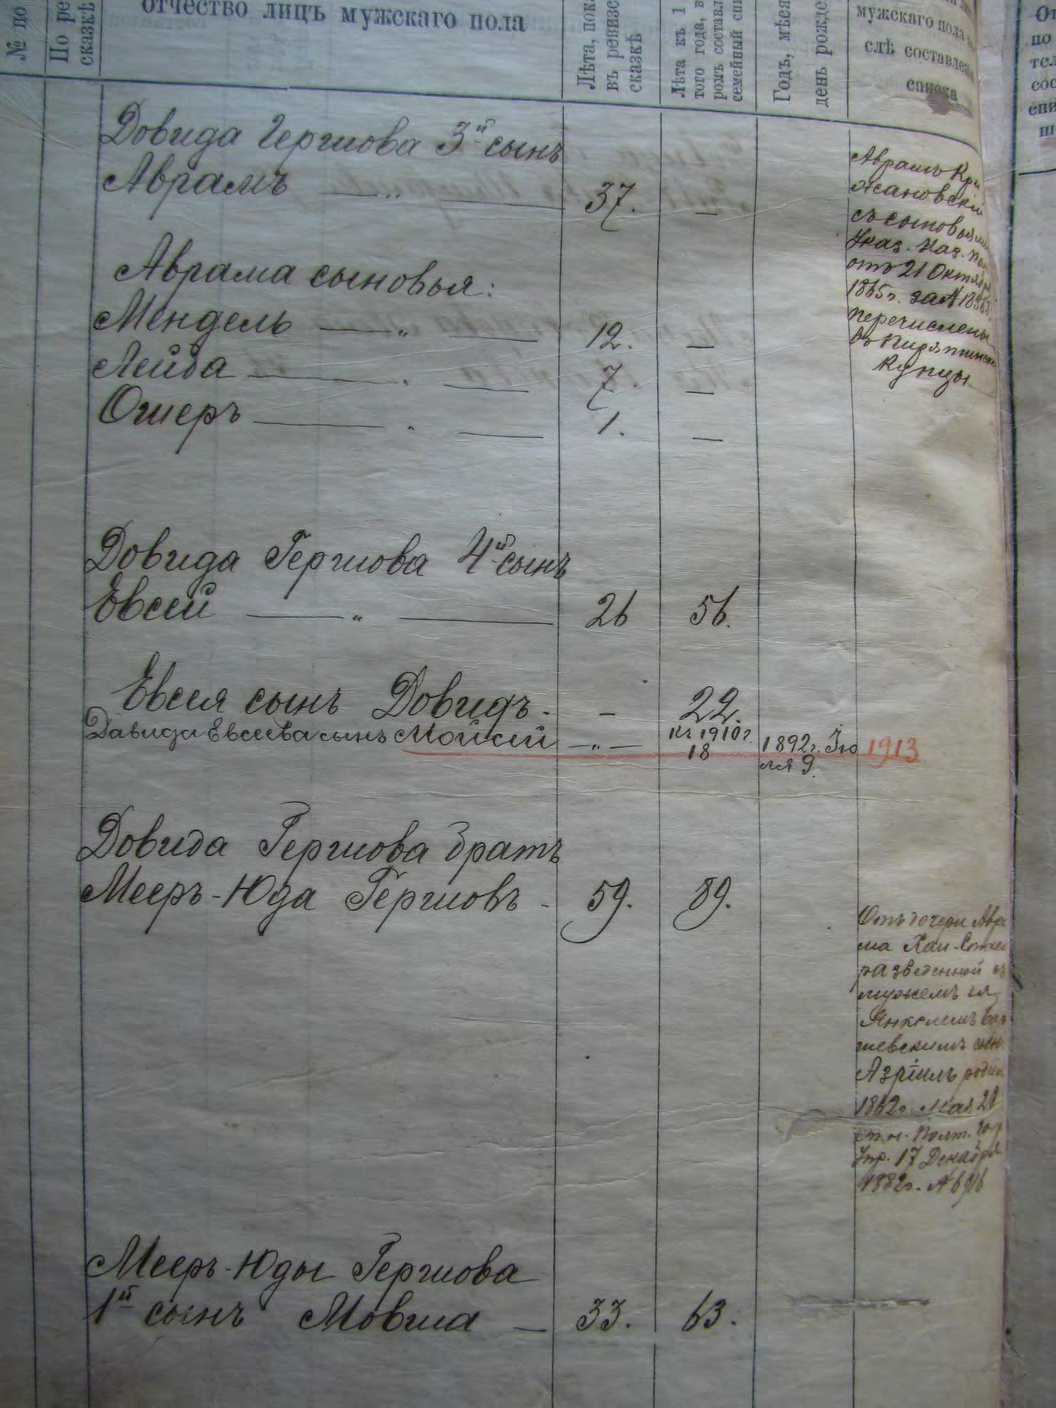 № по
По ре
сказкѣ
отчество лицъ мужскаго пола
Лѣта, пок.
въ ревизс
сказкѣ
Лѣта къ 1
того года, в
ромъ составл
семейный спи
Годъ, мѣся
день рожде
мужскаго пола
слѣ составле
списка
Довида Гершова 3й сынъ
Аврамъ — „ — 37. —
Аврама сыновья:
Мендель — „ — 12. —
Лейба — „ — 7 —
Ошеръ — „ — 1. —
Аврамъ Кри
жановскій
съ сыновьями
Указ. Каз. Пал
отъ 21 Октября
1865г. за №
перечислены
въ Пирятинск
купцы
Довида Гершова 4й сынъ
Евсей — „ — 26 56.
Евсея сынъ Довидъ. — 22.
Давида Евсеева сынъ Мойсей — „ — къ 1910г. 18 1892г. Iю
ля 9. 1913
Довида Гершова братъ
Мееръ-Юда Гершовъ - 59. 89.
Отъ дочери Авра
ма Хаи-
разведенной съ
мужемъ ея
Янкелемъ
шевскимъ сынъ
Азріилъ родил
1862г. Мая 20
ст. н. Полт. Гор
Упр. 17 Декабря
1882г. №
Мееръ-Юды Гершова
1й сынъ Мовша — 33. 63.